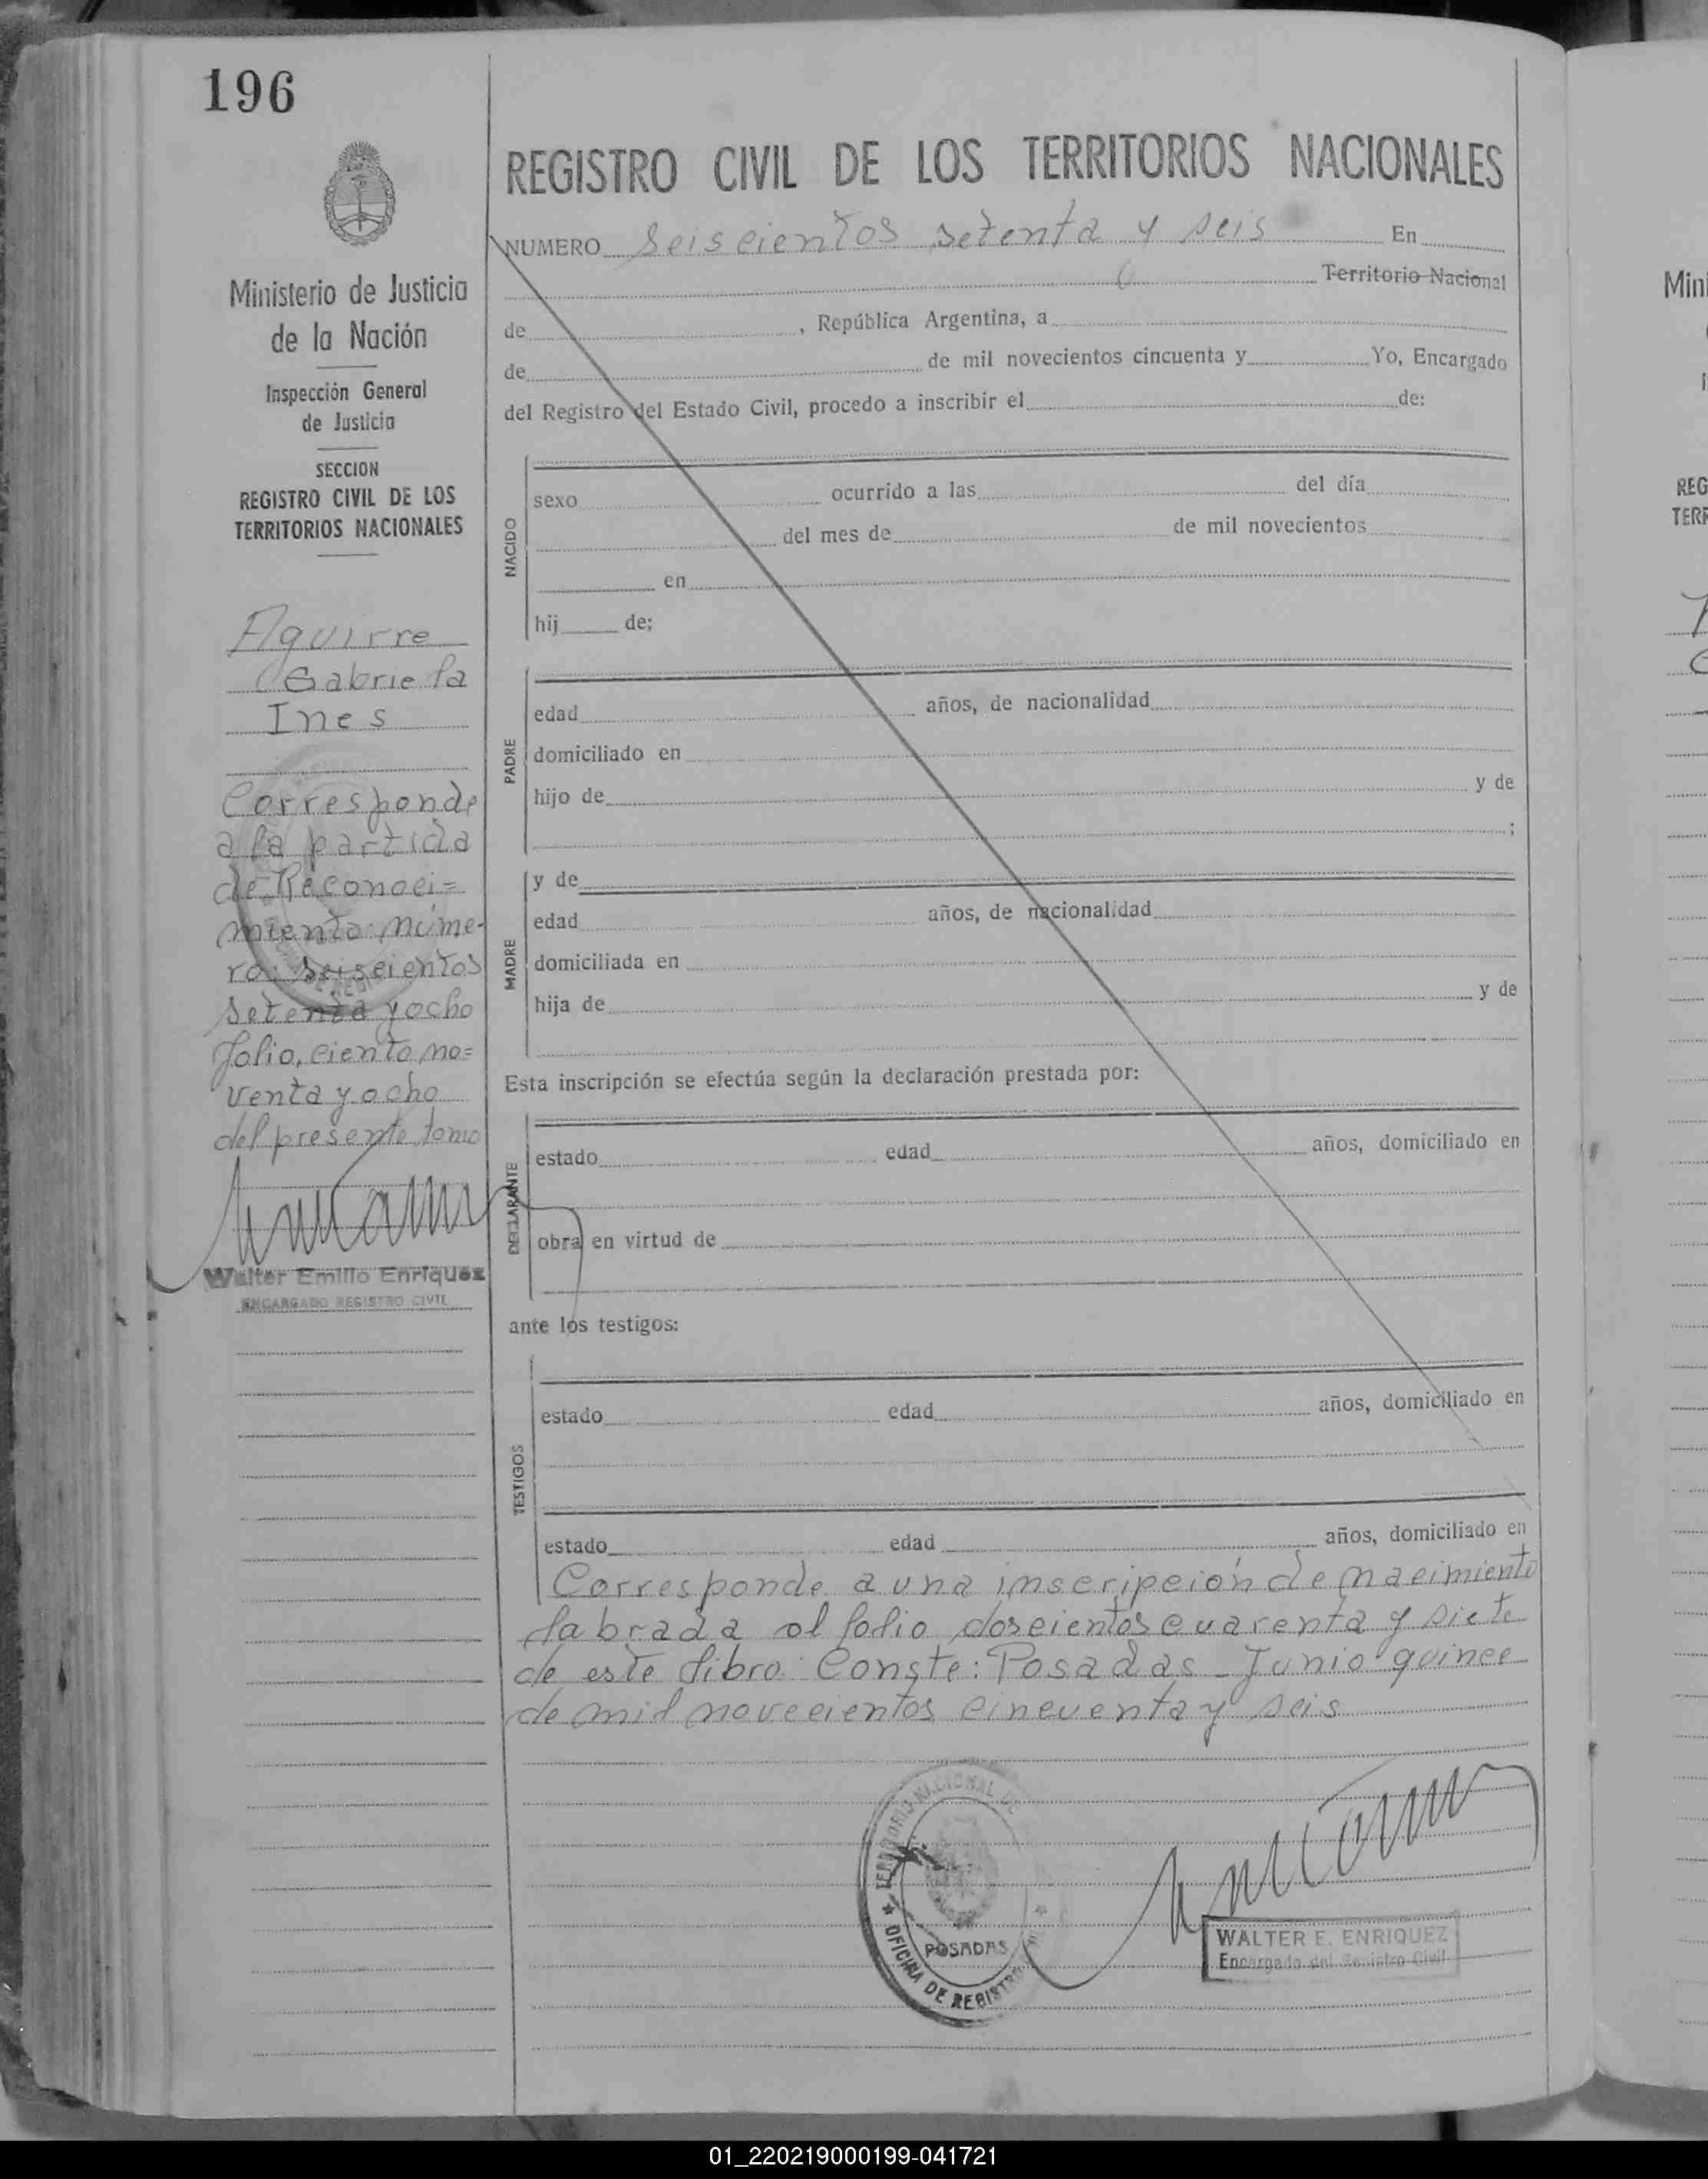 196
Ministerio de Justicia
de la Nación
Inspección General
de Justicia
SECCION
REGISTRO CIVIL DE LOS
TERRITORIOS NACIONALES
Aguirre
Gabriela
Ines
Corresponde
a la partida
de Reconoci=
miento: núme-
ro: seiscientos
setenta y ocho
folio, ciento no=
venta y ocho
del presente tomo
Walter Emilio Enriquez
ENCARGADO REGISTRO CIVIL
REGISTRO CIVIL DE LOS TERRITORIOS NACIONALES
NUMERO seiscientos setenta y seis En
Territorio Nacional
de , República Argentina, a
de de mil novecientos cincuenta y Yo, Encargado
del Registro del Estado Civil, procedo a inscribir el de:
NACIDO
sexo ocurrido a las del día
del mes de de mil novecientos
en
hij de;
PADRE
edad años, de nacionalidad
domiciliado en
hijo de y de
;
MADRE
y de
edad años, de nacionalidad
domiciliada en
hija de y de
Esta inscripción se efectúa según la declaración prestada por:
DECLARANTE
estado edad años, domiciliado en
obra en virtud de
ante los testigos:
TESTIGOS
estado edad años, domiciliado en
estado edad años, domiciliado en
Corresponde a una inscripción de nacimiento
labrada al folio doscientos cuarenta y siete
de este libro. Conste: Posadas - Junio quince
de mil novecientos cincuenta y seis
TERRITORIO NACIONAL DE
POSADAS
OFICINA DE REGISTRO
WALTER E. ENRIQUEZ
Encargado del Registro Civil
Mini
REG
TERR
01_220219000199-041721